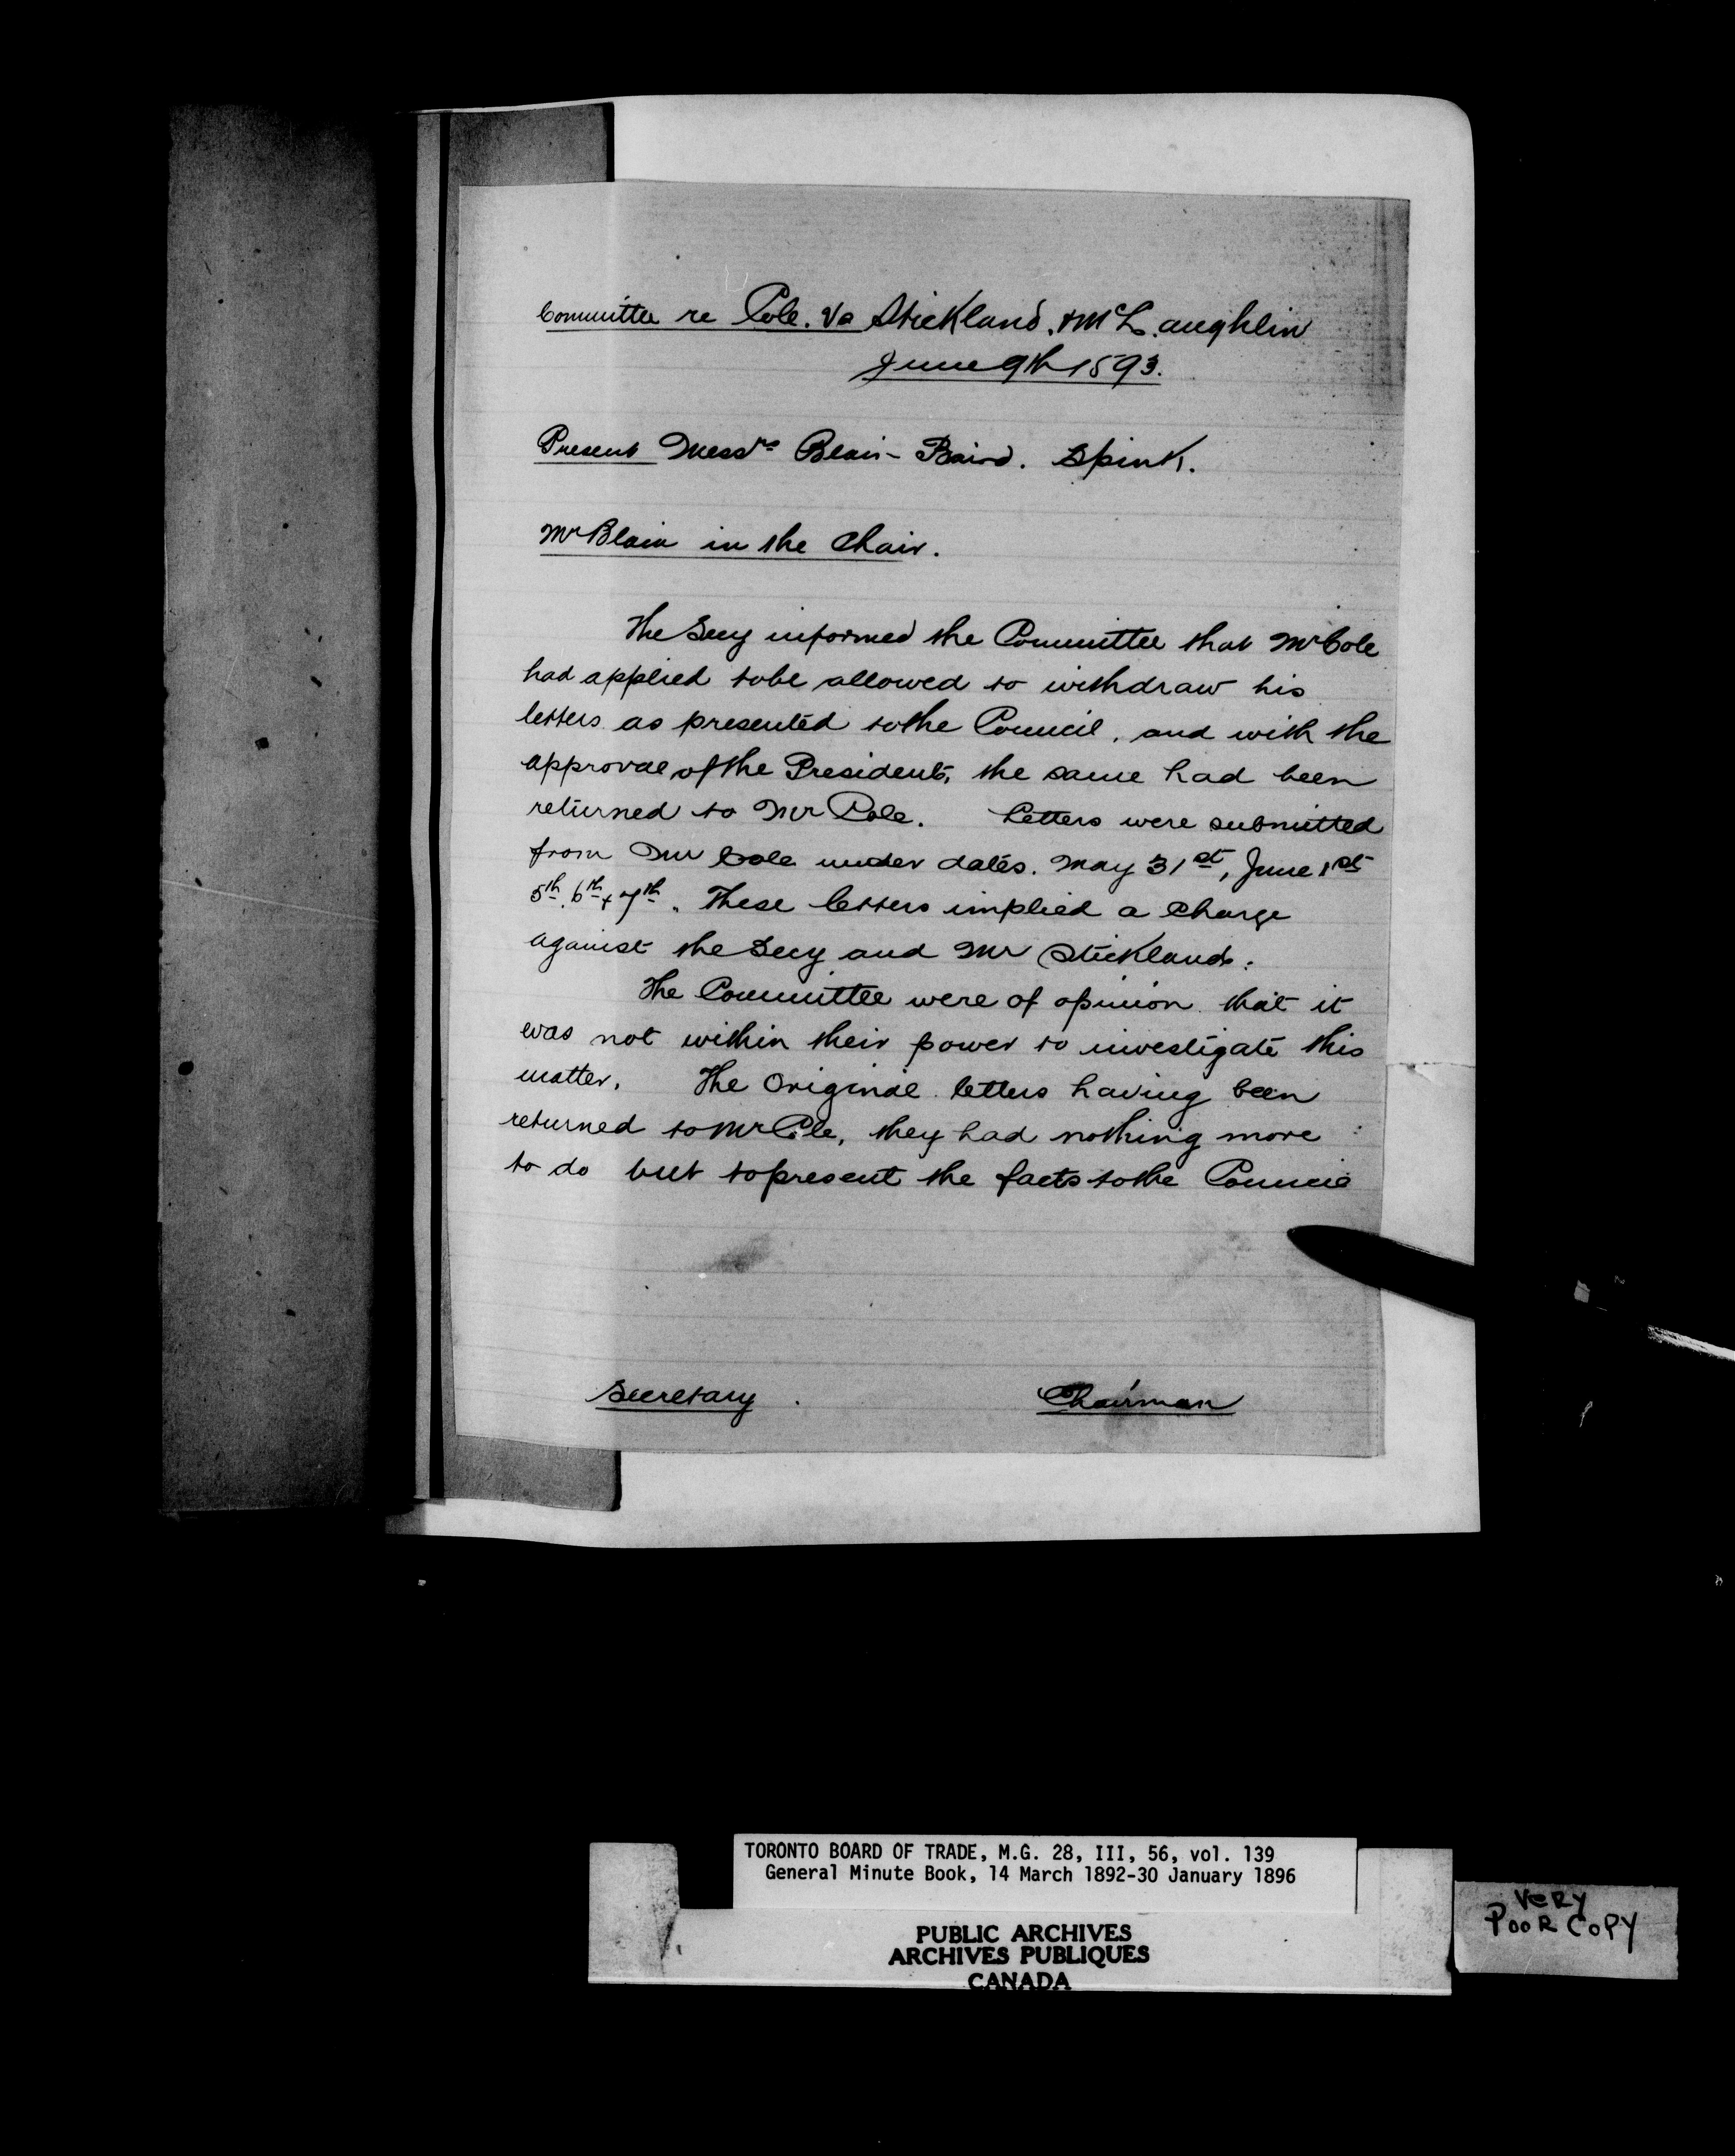 Committee re Cole. Vs Stickland. & McLaughlin
June 9th 1893.
Present Messrs Blain - Baird. Spink.
Mr Blain in the Chair.
The Secy informed the Committee that Mr Cole
had applied to be allowed to withdraw his
letters as presented to the Council, and with the
approval of the President, the same had been
returned to Mr Cole. Letters were submitted
from Mr Cole under dates. May 31st, June 1st
5th, 6th & 7th. These letters implied a charge
against the Secy and Mr Stickland.
The Committee were of opinion that it
was not within their power to investigate this
matter. The Original letters having been
returned to Mr Cole, they had nothing more
to do but to present the facts to the Council
Secretary.
Chairman
TORONTO BOARD OF TRADE, M.G. 28, III, 56, vol. 139
General Minute Book, 14 March 1892-30 January 1896
PUBLIC ARCHIVES
ARCHIVES PUBLIQUES
CANADA
VeRy
PooR CoPY